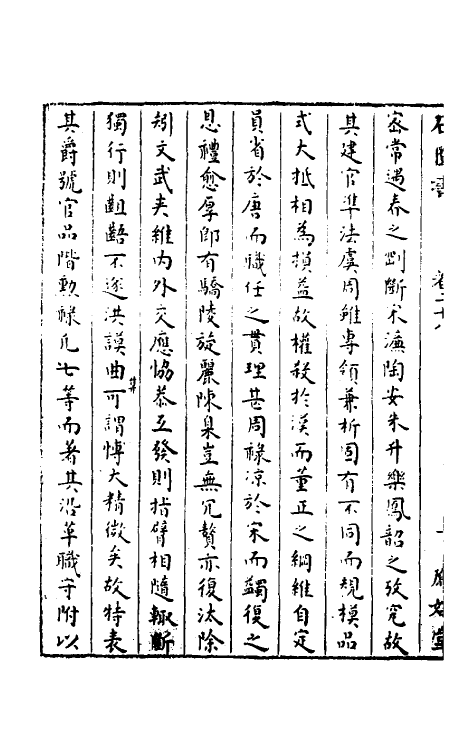 石匱書 卷二十八
密常遇春之剛斷宋濂陶安朱升樂鳳韶之攷究故
其建官準法虞周雖專領兼析固有不同而規模品
式大抵相為損益故權殺於漢而董正之綱維自定
員省於唐而職任之貫理甚周祿凉於宋而蠲復之
恩禮愈厚卽有驕陵旋麗陳臬豈無冗贅亦復汰除
矧文武夹維內外交應恊恭互發則指臂相隨輙斷
獨行則齟齬不逐洪謨曲筭可謂愽大精微矣故特表
其爵號官品階勳祿凢七等而著其沿革職守附以